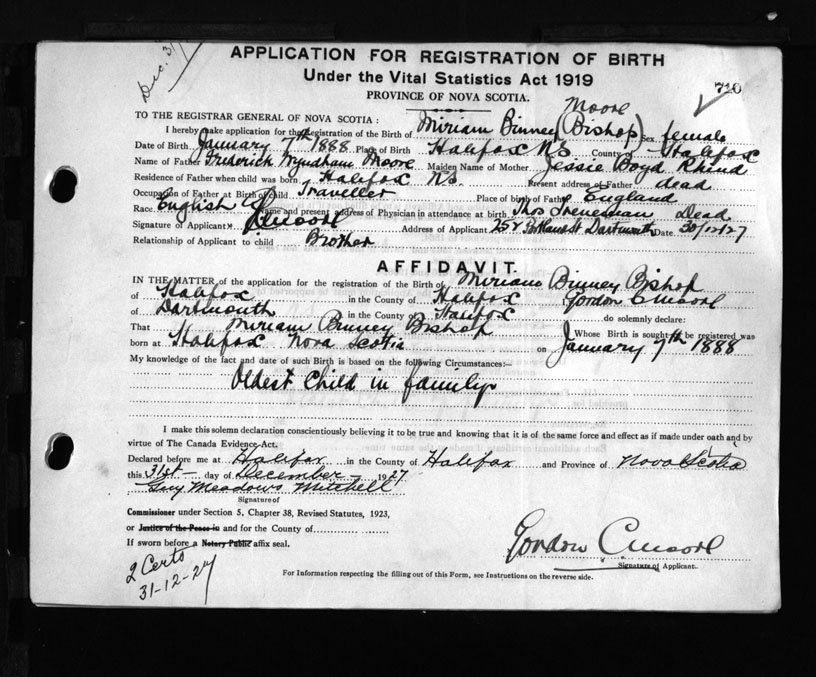 Dec. 31
APPLICATION FOR REGISTRATION OF BIRTH
Under the Vital Statistics Act 1919
710
PROVINCE OF NOVA SCOTIA.
Moore
TO THE REGISTRAR GENERAL OF NOVA SCOTIA:
I hereby make application for the Registration of the Birth of Miriam Binney (Bishop) Sex female
Date of Birth January 7th 1888 Place of Birth Halifax N.S. County Halifax
Name of Father Frederick Wyndham Moore Maiden Name of Mother Jessie Boyd Rhind
Residence of Father when child was born Halifax N.S. Present address of Father dead
Occupation of Father at Birth of child Traveller Place of birth of Father England
Race. English Name and present address of Physician in attendance at birth Thos Trenaman Dead
Signature of Applicant Moore Address of Applicant 258 Portland St Dartmouth Date 30/12/27
Relationship of Applicant to child Brother
AFFIDAVIT.
IN THE MATTER of the application for the registration of the Birth of Miriam Binney Bishop
of Halifax in the County of Halifax Gordon C Moore
of Dartmouth in the County of Halifax do solemnly declare:
That Miriam Binney Bishop Whose Birth is sought to be registered was
born at Halifax Nova Scotia on January 7th 1888
My knowledge of the fact and date of such Birth is based on the following Circumstances:—
Oldest Child in family
I make this solemn declaration conscientiously believing it to be true and knowing that it is of the same force and effect as if made under oath and by
virtue of The Canada Evidence Act.
Declared before me at Halifax in the County of Halifax and Province of Nova Scotia
this 31st day of December 1927
Guy Meadows Mitchell
Signature of
Commissioner under Section 5, Chapter 38, Revised Statutes, 1923,
or Justice of the Peace in and for the County of
If sworn before a Notary Public affix seal.
Gordon C Moore
Signature of Applicant.
2 Certs
31-12-27
For Information respecting the filling out of this Form, see Instructions on the reverse side.